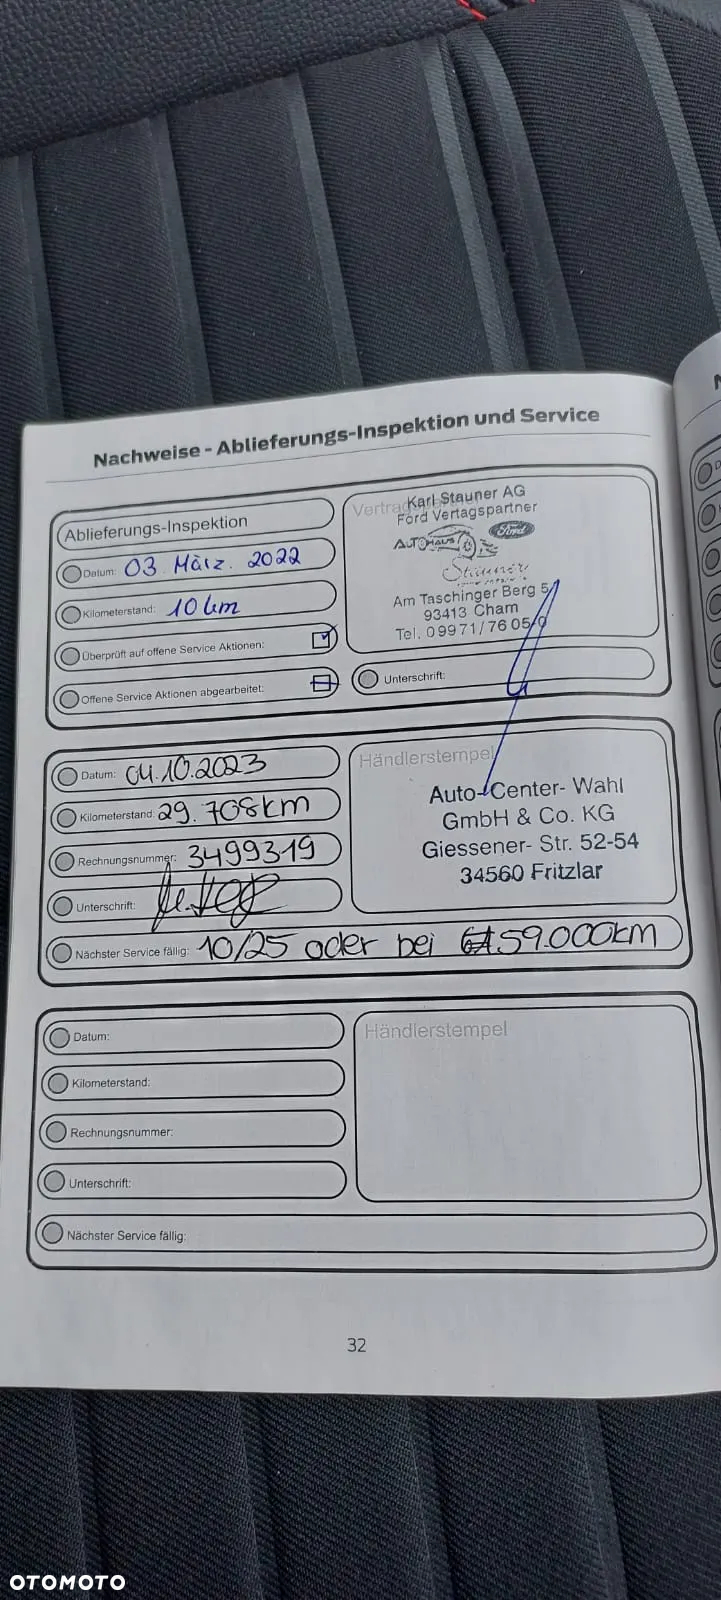 Nachweise - Ablieferungs-Inspektion und Service
Ablieferungs-Inspektion
Datum: 03 März. 2022
Kilometerstand: 10 km
Überprüft auf offene Service Aktionen:
Offene Service Aktionen abgearbeitet:
Karl Stauner AG
Ford Vertagspartner
AUTOHAUS
Ford
Stauner
Am Taschinger Berg 5
93413 Cham
Tel. 09971/76 05-0
Unterschrift:
Datum: 04.10.2023
Kilometerstand: 29.708km
Rechnungsnummer: 3499319
Unterschrift:
Nächster Service fällig: 10/25 oder bei 59.000km
Händlerstempel
Auto-Center-Wahl
GmbH & Co. KG
Giessener- Str. 52-54
34560 Fritzlar
Datum:
Kilometerstand:
Rechnungsnummer:
Unterschrift:
Nächster Service fällig:
Händlerstempel
32
OTOMOTO